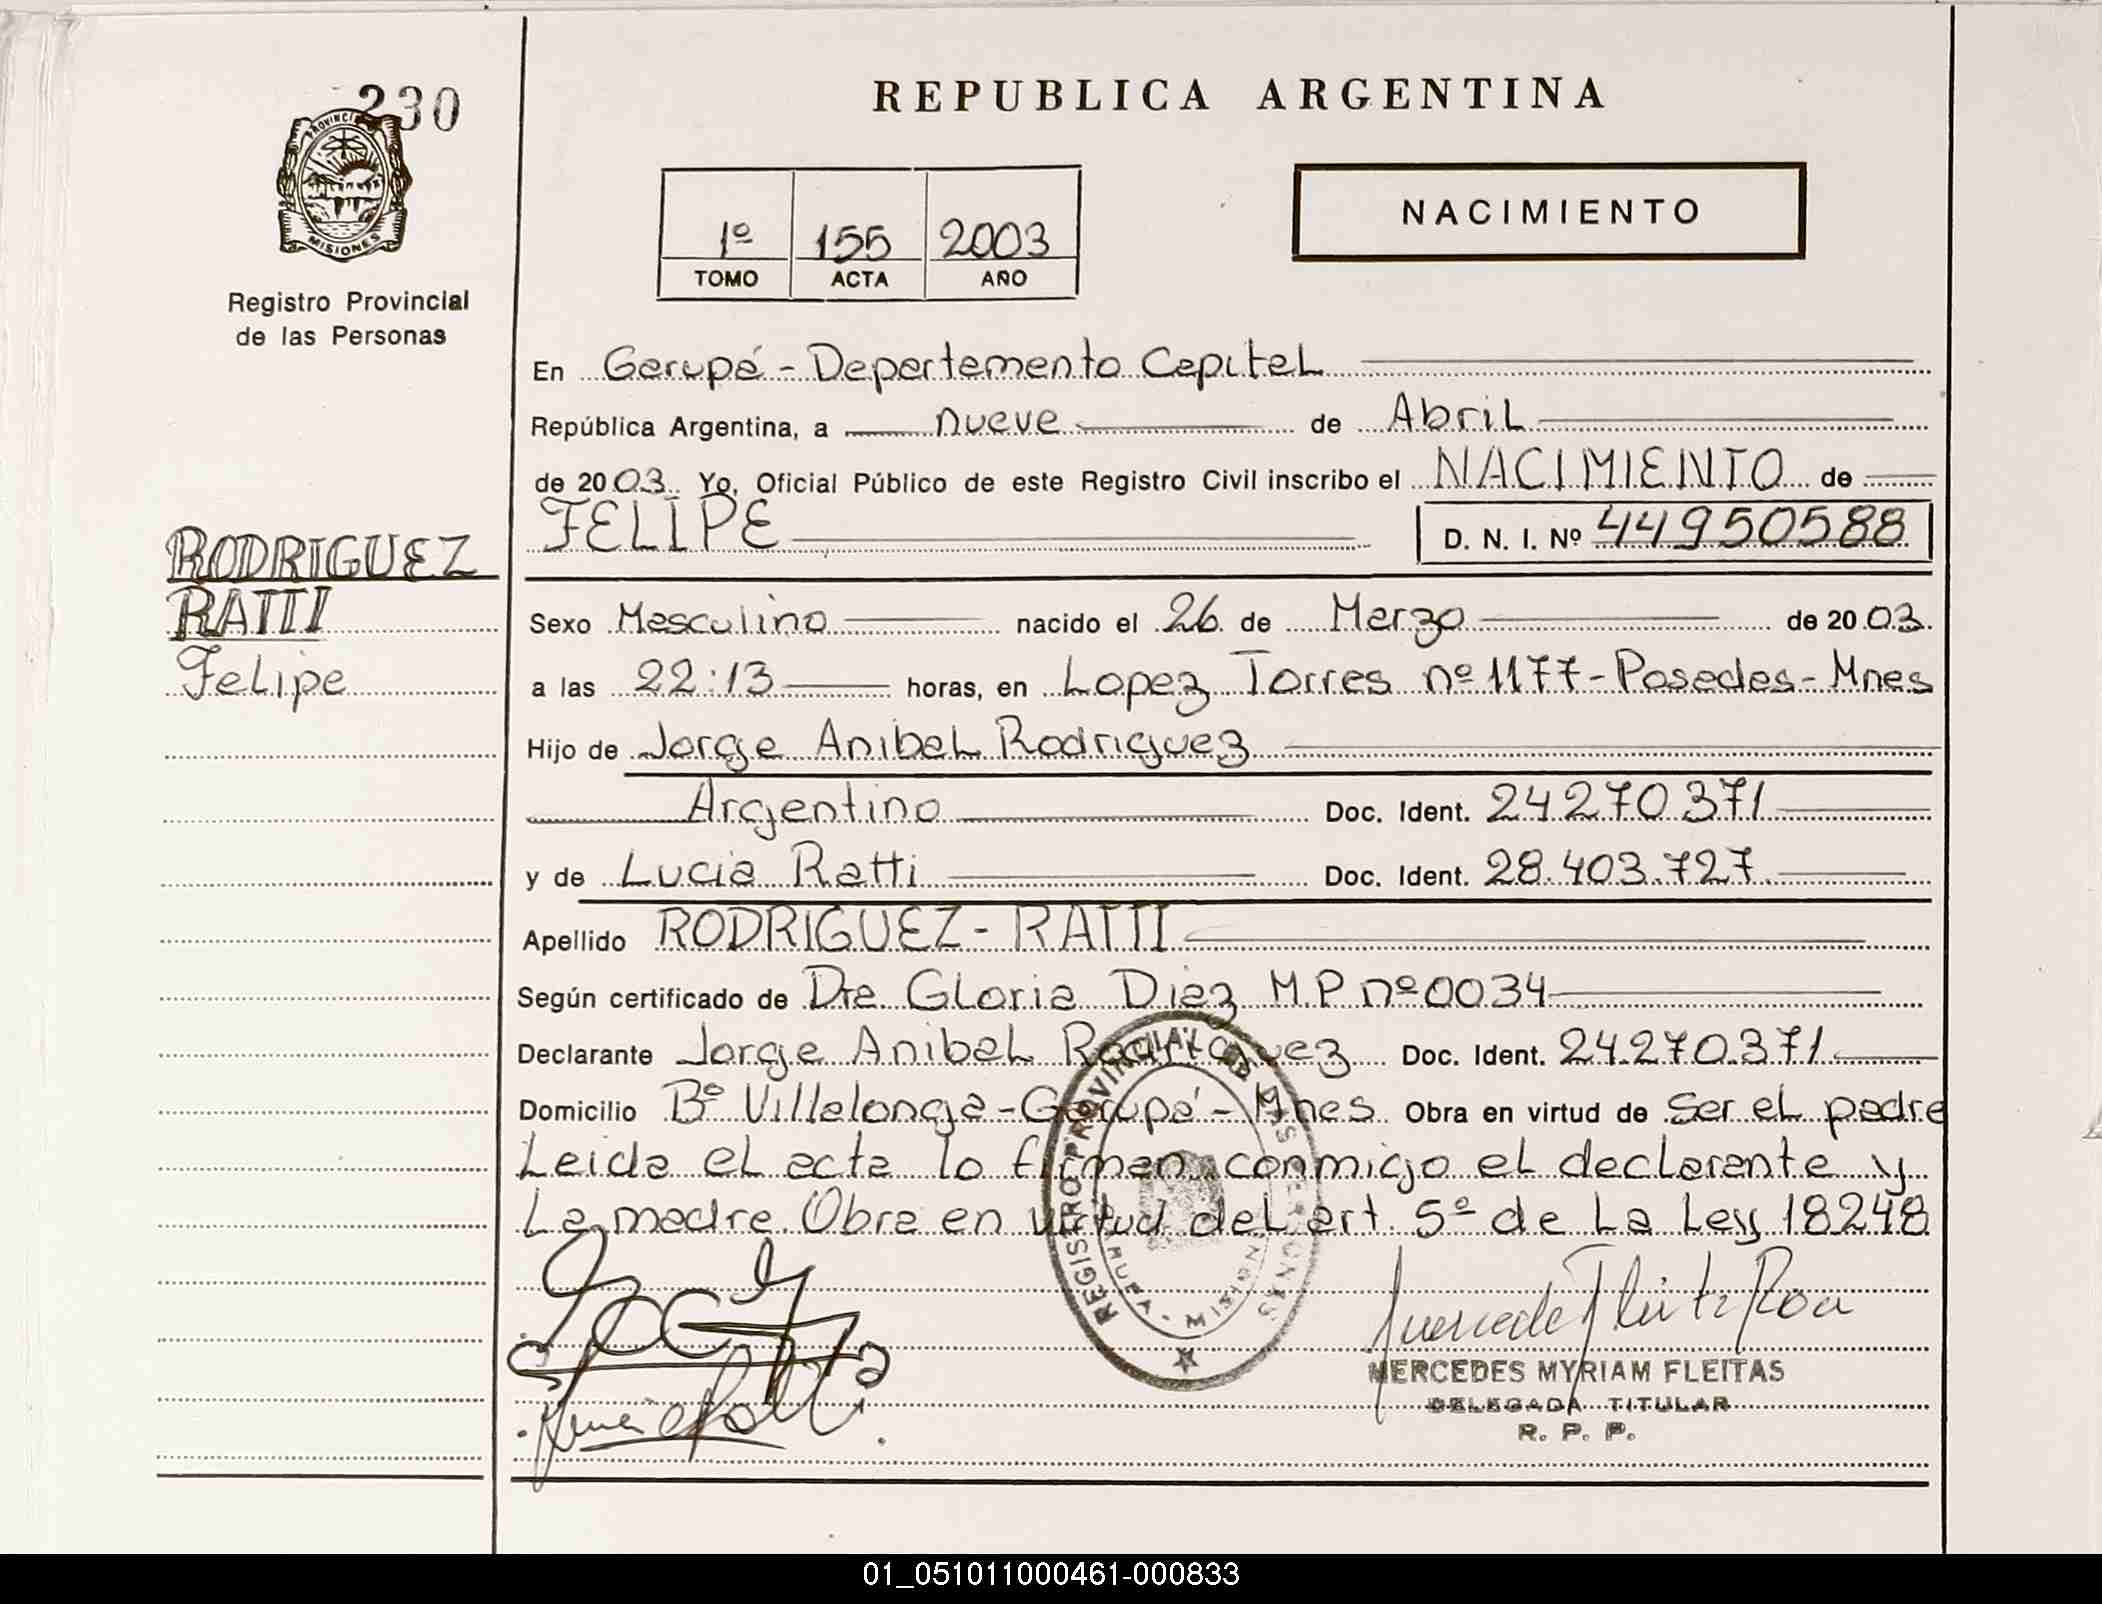 230
PROVINCIA
MISIONES
Registro Provincial
de las Personas
REPUBLICA ARGENTINA
1º 155 2003
TOMO ACTA AÑO
NACIMIENTO
En Garupá - Departamento Capital
República Argentina, a nueve de Abril
de 2003 Yo, Oficial Público de este Registro Civil inscribo el NACIMIENTO de
FELIPE D. N. I. Nº 44950588
RODRIGUEZ
RATTI
Felipe
Sexo Masculino nacido el 26 de Marzo de 2003.
a las 22:13 horas, en Lopez Torres nº 1177 - Posadas - Mnes
Hijo de Jorge Anibal Rodriguez
Argentino Doc. Ident. 24.270.371
y de Lucia Ratti Doc. Ident. 28.403.727
Apellido RODRIGUEZ - RATTI
Según certificado de Dra Gloria Diaz M.P nº 0034
Declarante Jorge Anibal Rodriguez Doc. Ident. 24.270.371
Domicilio Bº Villalonga - Garupá - Mnes Obra en virtud de ser el padre
Leida el acta lo firman conmigo el declarante y
La madre. Obra en virtud del art. 5º de La Ley 18248
REGISTRO PROVINCIAL DE LAS PERSONAS
MISIONES
MERCEDES MYRIAM FLEITAS
DELEGADA TITULAR
R. P. P.
01_051011000461-000833